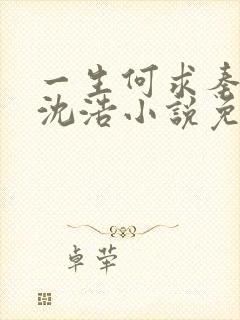 一生何求秦
沈浩小说免
卓荦